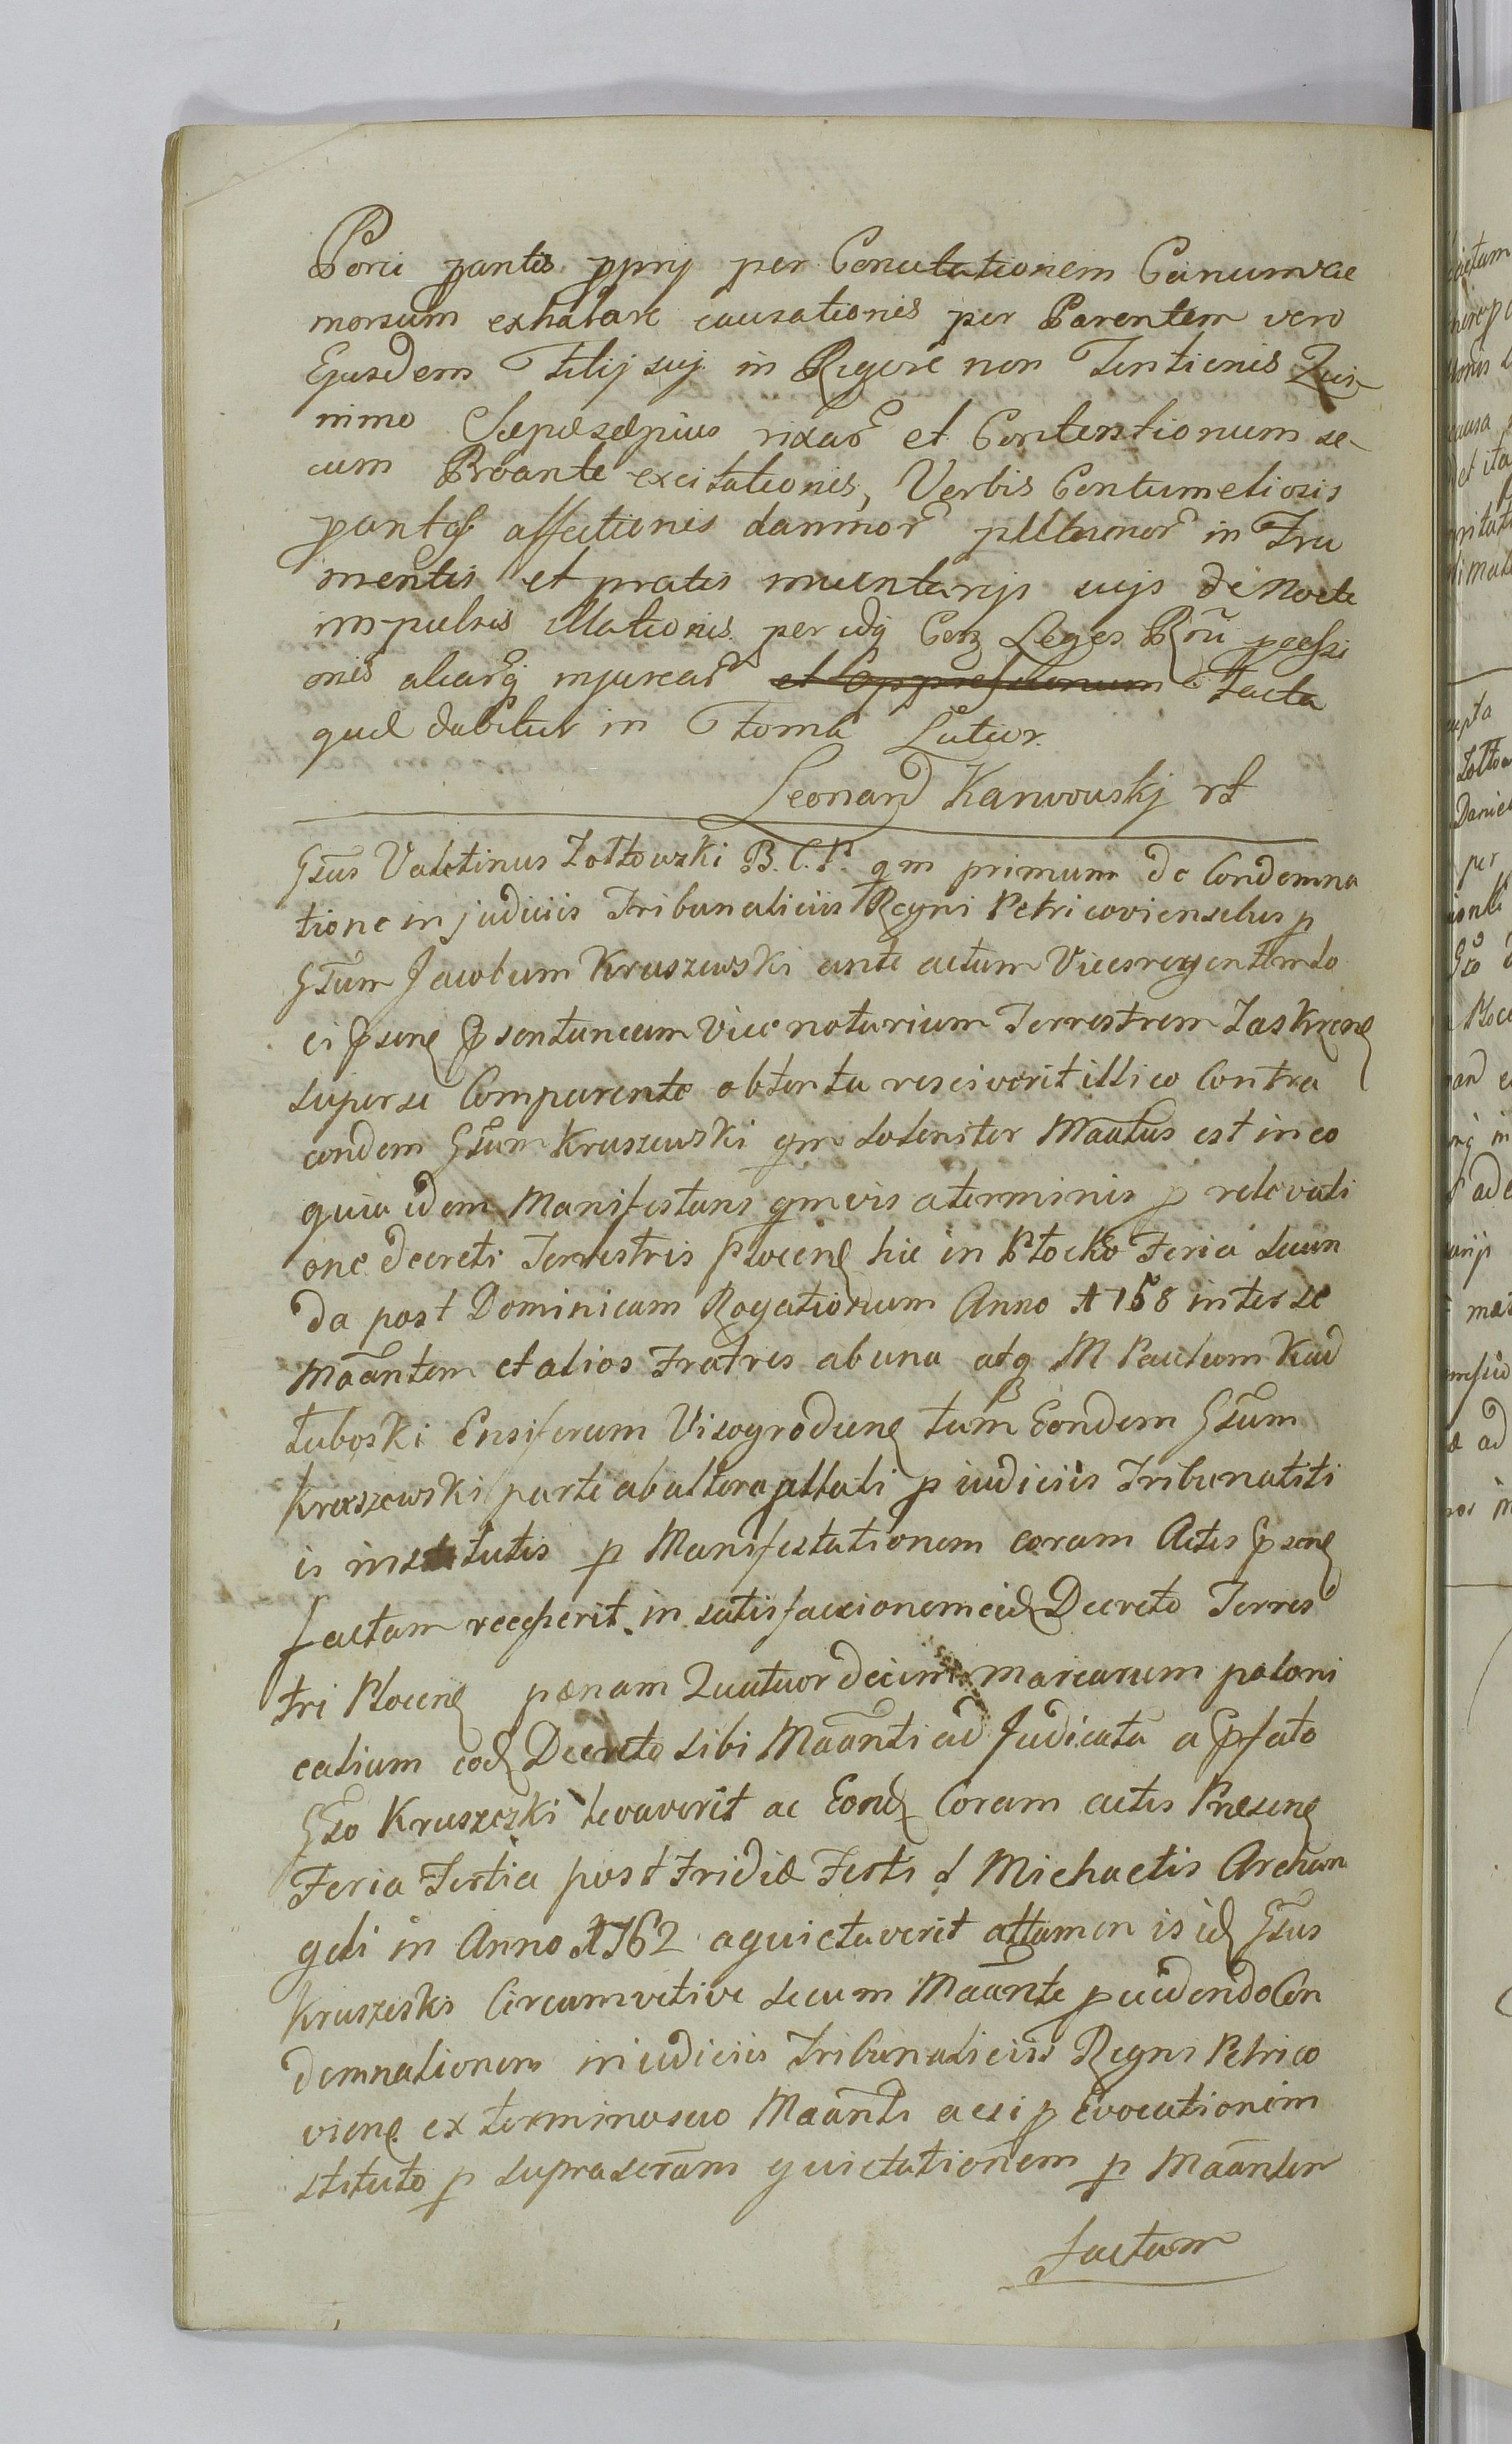 Porci pantis pprij per Concitationem Canumvae
morsum exhalare causationis per Parentem vero
Ejusdem Filij sui in Rigore non Tentionis Qui
nimo Saepesaepius rixar et Contentionum se
cum Proante excitationis, Verbis Contumeliosis
pantes affectionis damnor plurimor in Fru
mentis et pratis inventarijs suis de Nocte
impulsis illationis per idq Contra Leges Rni processi
onis aliarq injuriar et Oppressionum Facta
quae dabitur in Forma Latior.
Leonard Karwowskj rt
Gsus Valetinus Zołtowski B.C.P. qm primum de Condemna
tione in judiciis Tribunaliciis Regni Petricoviensibus p
Gsum Jacobum Kruszewski ante actum Vicesregentem lo
ci Psenę Psentaneum Vice notarium Terrestrem Zaskrzenę
super se Comparente obtenta resciverit illico Contra
eundem Gsum Kruszewski qm soleniter Maatus est in eo
quia idem Manifestans qmvis a terminis p relevati
one decreti Terrestris Plocenę hic in Płocko Feria secun
da post Dominicam Rogationum Anno 1758 inter se
Maantem et alios Fratres ab una atq M Paulum Kad
łuboski Ensiferum Visogrodienę tum Eundem Gsum
Kruszewski parte ab altera pttali p iudiciis Tribunaliti
is institutis p Manifestationem coram Actis Psenę
factam recesserit in satisfactionem eid Decreto Terres
tri Plocenę paenam Quatuordecim marcarum poloni
calium eod Decreto sibi Maanti adjudicata a Pfato
Gso Kruszeski levaverit ac Eund Coram actis Praesenę
Feria Tertia post Fridie Festi S Michaelis Archan
geli in Anno 1762 aquietaverit attamen is id Gsus
Kruszeski Circumvetive secum Maante pcedendo Con
demnationem in iudiciis Tribunaliciis Regni Petrico
vienę ex termino suo Maanti acsi p Evocationem
stituto p suprascram quietationem p Maantem
factam